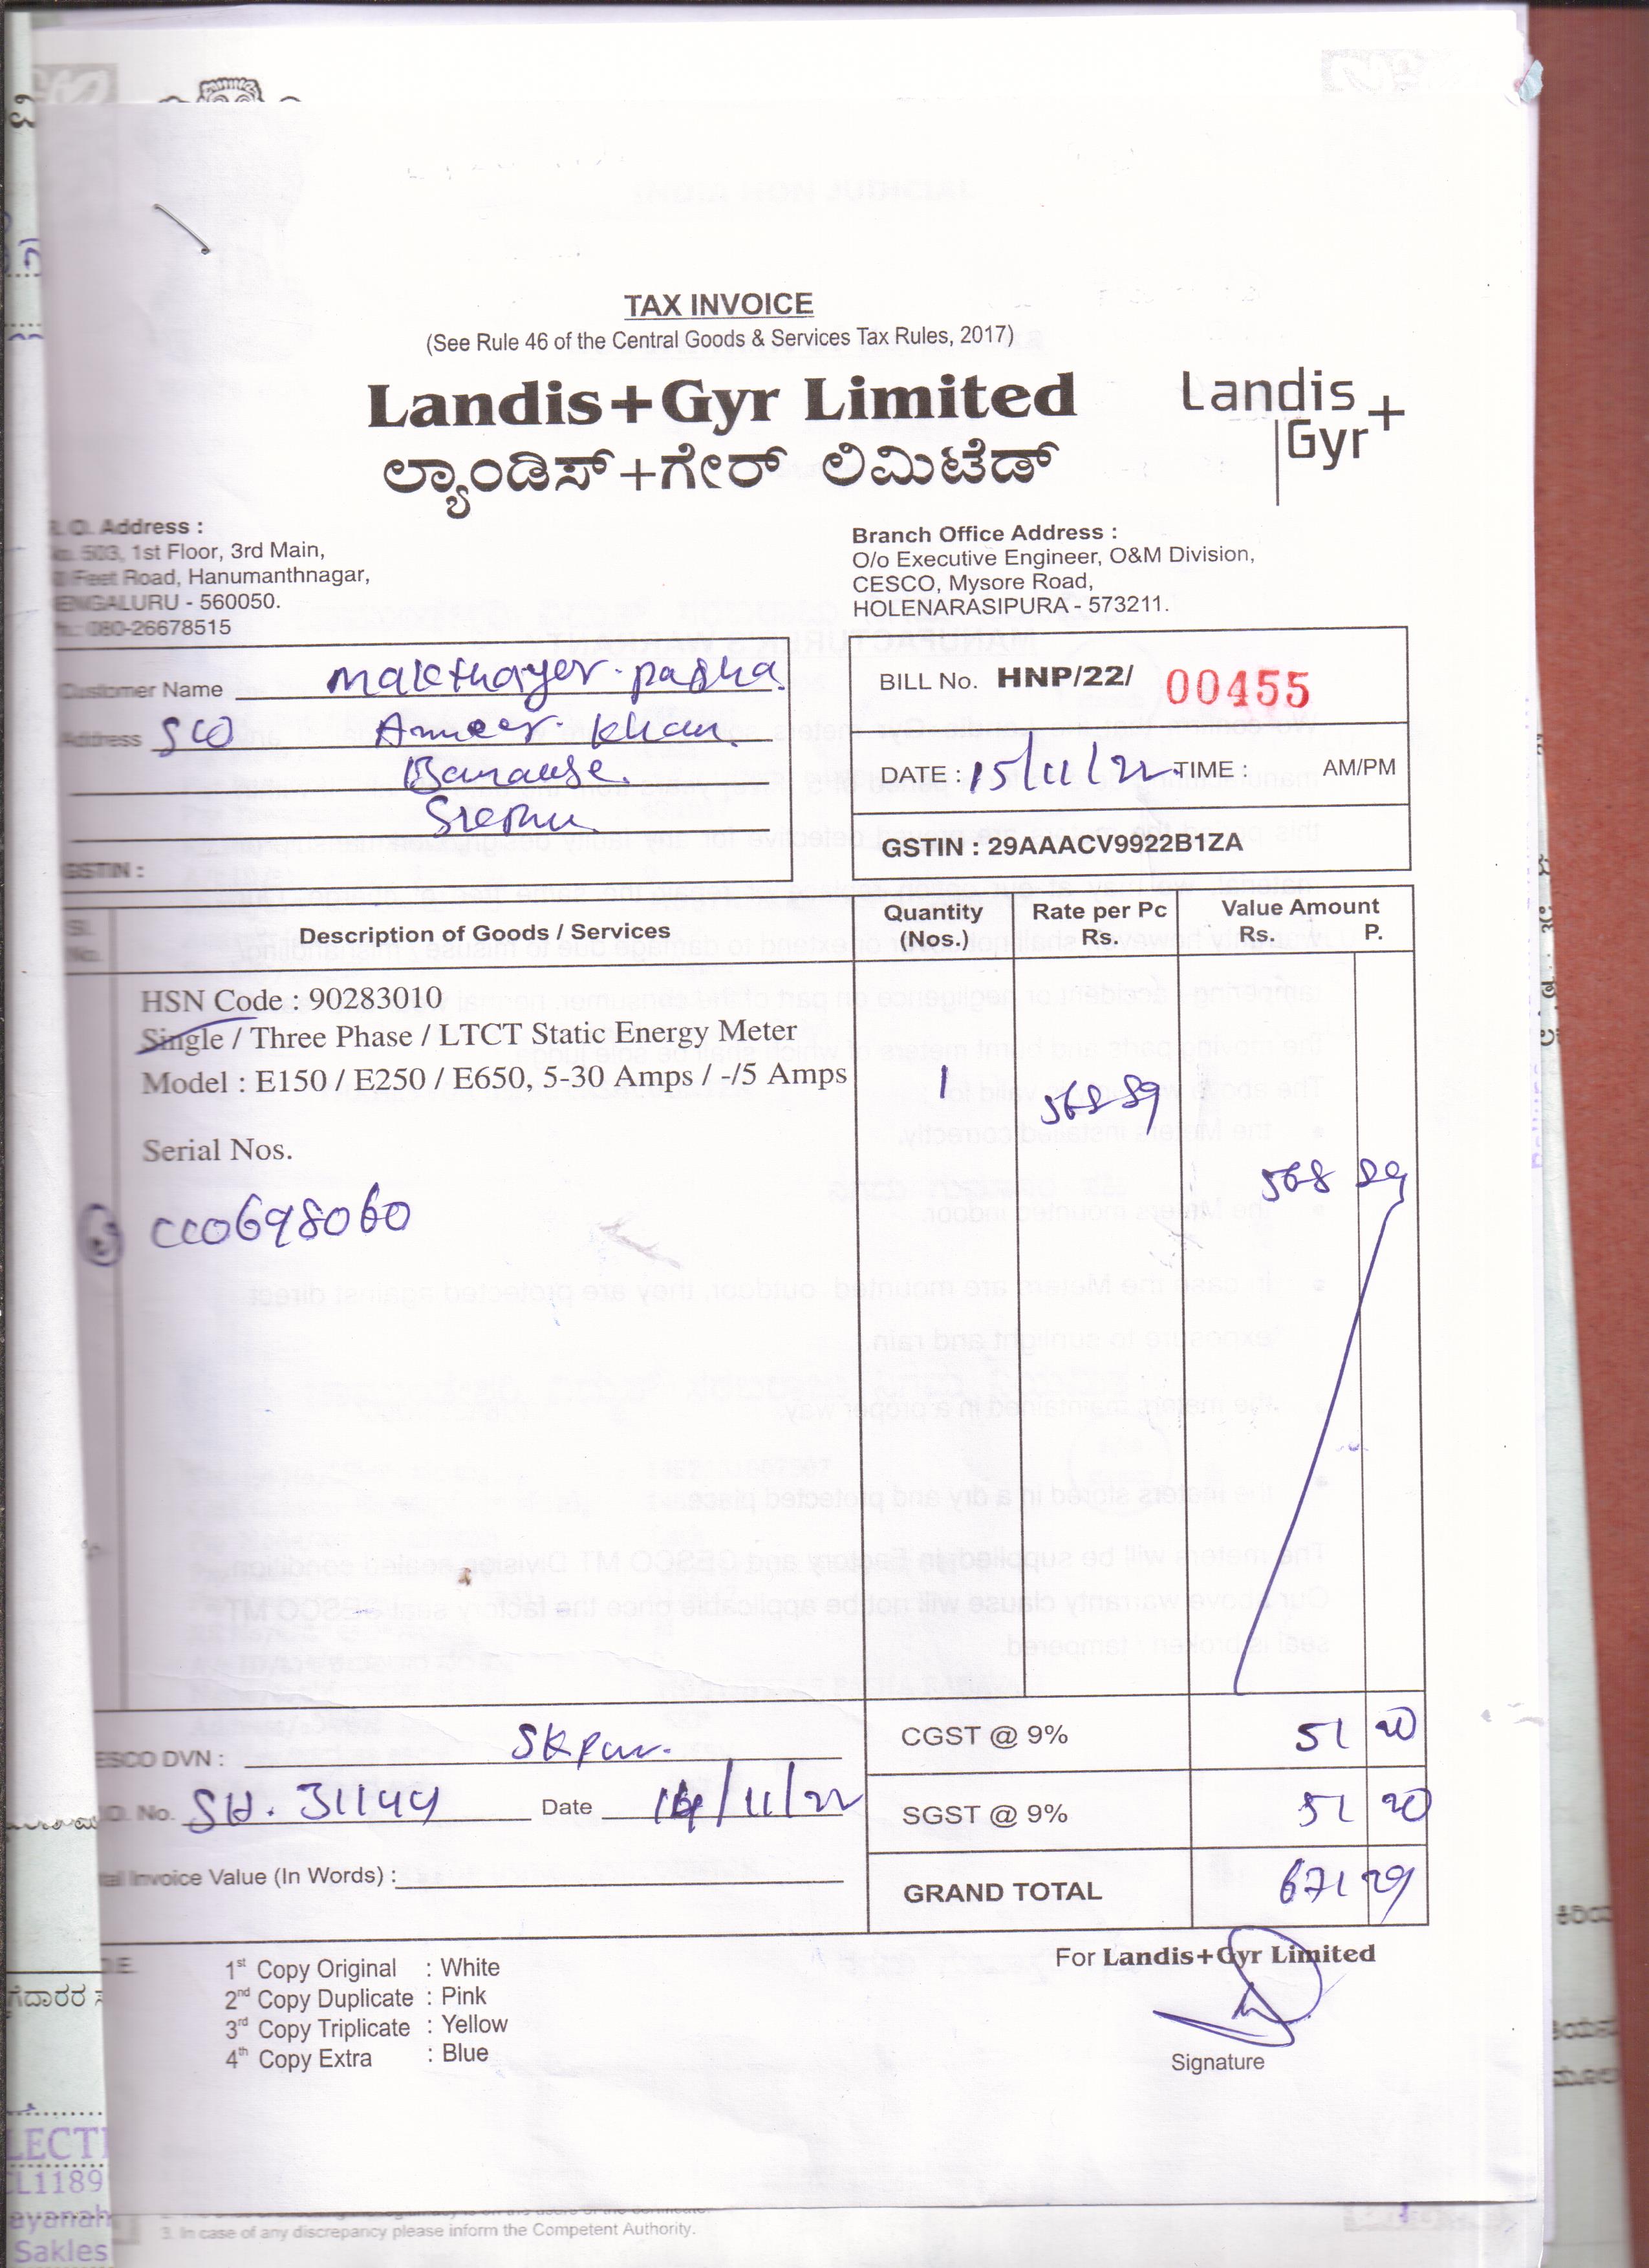 TAX INVOICE
(See Rule 46 of the Central Goods & Services Tax Rules, 2017)
Landis+Gyr Limited
ಲ್ಯಾಂಡಿಸ್+ಗೇರ್ ಲಿಮಿಟೆಡ್
Landis+
Gyr
Address :
503, 1st Floor, 3rd Main,
Feet Road, Hanumanthnagar,
BENGALURU - 560050.
080-26678515
Branch Office Address :
O/o Executive Engineer, O&M Division,
CESCO, Mysore Road,
HOLENARASIPURA - 573211.
Customer Name Makthayer pasha
Address S/O Ameer khan
GSTIN :
BILL No. HNP/22/ 00455
DATE : 15/11/22 TIME : AM/PM
GSTIN : 29AAACV9922B1ZA
Sl. No.
Description of Goods / Services
Quantity (Nos.)
Rate per Pc Rs.
Value Amount Rs. P.
HSN Code : 90283010
Single / Three Phase / LTCT Static Energy Meter
Model : E150 / E250 / E650, 5-30 Amps / -/5 Amps
1 568 89
Serial Nos.
568 89
CC0698060
CGST @ 9% 51 20
ESCO DVN : SKpur.
SGST @ 9% 51 20
O. No. SH. 31144 Date 14/11/22
Invoice Value (In Words) :
GRAND TOTAL 671 29
1st Copy Original : White
2nd Copy Duplicate : Pink
3rd Copy Triplicate : Yellow
4th Copy Extra : Blue
For Landis+Gyr Limited
Signature
LECT
L1189
ayanah
Sakles
3. In case of any discrepancy please inform the Competent Authority.